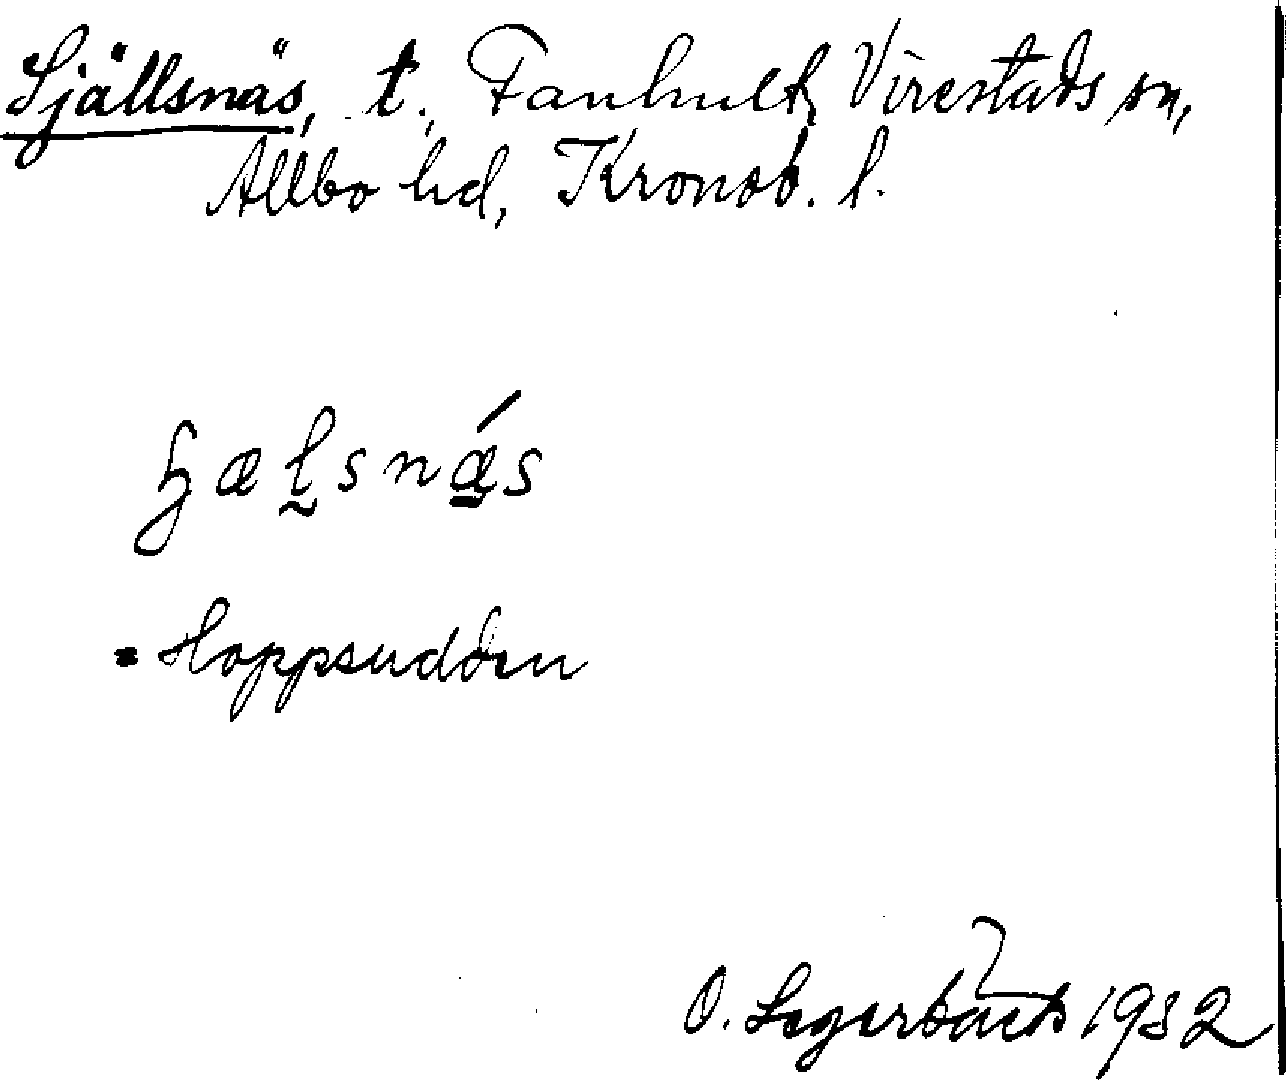 Själlsnäs, t., Fanhult, Virestads sn,
Allbo hd, Kronob. l.
ɧæl̰snǽs
= Hoppsudden
O. Segerbäck 1932